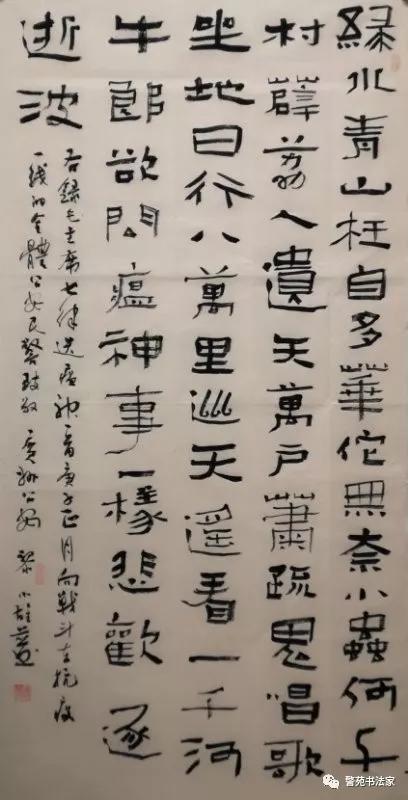 緑水青山枉自多華佗無奈小蟲何千
村薜荔人遺矢萬戶蕭疏鬼唱歌
坐地日行八萬里巡天遥看一千河
牛郎欲問瘟神事一樣悲歡逐
逝波
右録毛主席七律送瘟神一首庚子正月向戰斗在抗疫
一线的全體公安民警致敬 貴州公安 黎小
警苑书法家